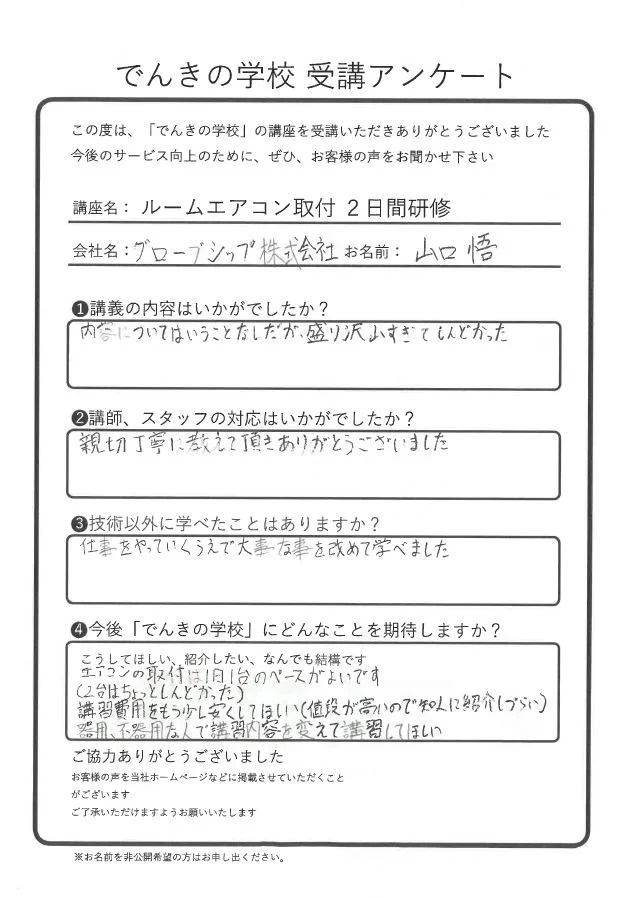 でんきの学校 受講アンケート
この度は、「でんきの学校」の講座を受講いただきありがとうございました
今後のサービス向上のために、ぜひ、お客様の声をお聞かせ下さい
講座名： ルームエアコン取付 ２日間研修
会社名：グローブシップ株式会社 お名前： 山口 悟
❶講義の内容はいかがでしたか？
内容についてはいうことなしだが、盛り沢山すぎてしんどかった
❷講師、スタッフの対応はいかがでしたか？
親切丁寧に教えて頂きありがとうございました
❸技術以外に学べたことはありますか？
仕事をやっていくうえで大事な事を改めて学べました
❹今後「でんきの学校」にどんなことを期待しますか？
こうしてほしい、紹介したい、なんでも結構です
エアコンの取付は1日1台のペースがよいです
(2台はちょっとしんどかった)
講習費用をもう少し安くしてほしい(値段が高いので知人に紹介しづらい)
器用、不器用な人で講習内容を変えて講習してほしい
ご協力ありがとうございました
お客様の声を当社ホームページなどに掲載させていただくこと
がございます
ご了承いただけますようお願いいたします
※お名前を非公開希望の方はお申し出ください。